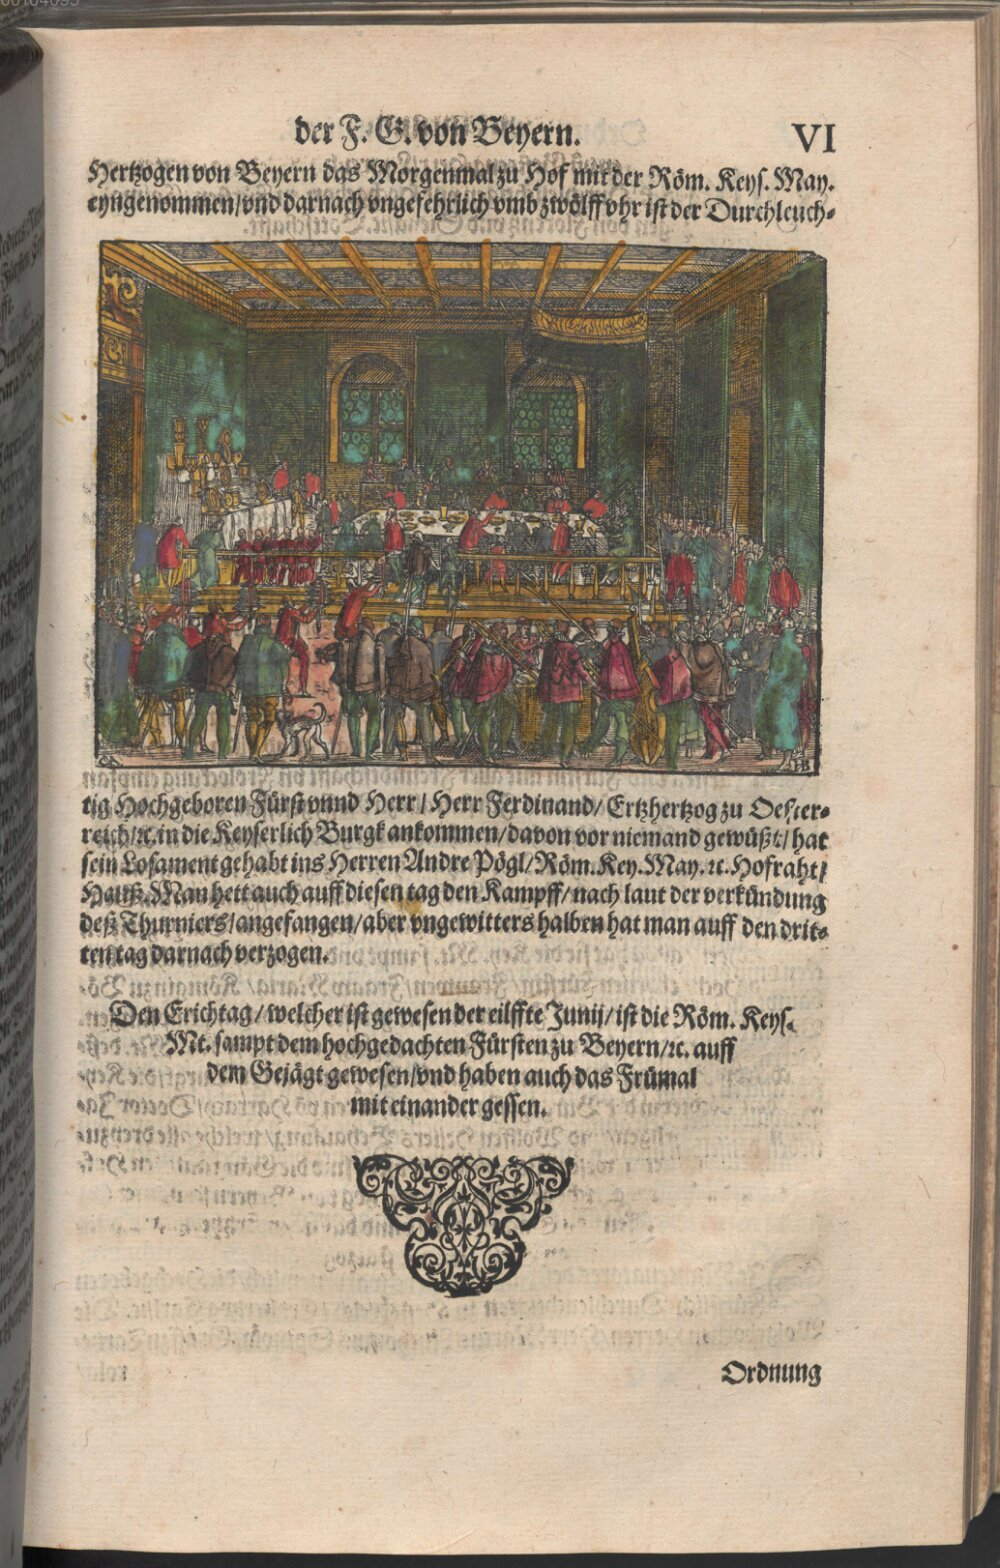 der F. G. von Beyern. VI
Hertzogen von Beyern das Morgenmal zu Hof mit der Röm. Keys. May.
eyngenommen/vnd darnach vngefehrlich vmb zwölff vhr ist der Durchleuch-
tig Hochgeboren Fürst vnnd Herr/ Herr Ferdinand/ Ertzhertzog zu Oester-
reich/ꝛc. in die Keyserlich Burgk ankommen/davon vor niemand gewüßt/ hat
sein Losament gehabt ins Herren Andre Pögl/ Röm. Key. May. ꝛc. Hofraht/
Hauß. Man hett auch auff diesen tag den Kampff/ nach laut der verkündung
deß Thurniers/ angefangen/ aber vngewitters halben hat man auff den drit-
ten tag darnach verzogen.
Den Erichtag/ welcher ist gewesen der eilffte Junij/ ist die Röm. Keys.
Mt. sampt dem hochgedachten Fürsten zu Beyern/ꝛc. auff
dem Gejägt gewesen/vnd haben auch das Frümal
mit einander gessen.
Ordnung